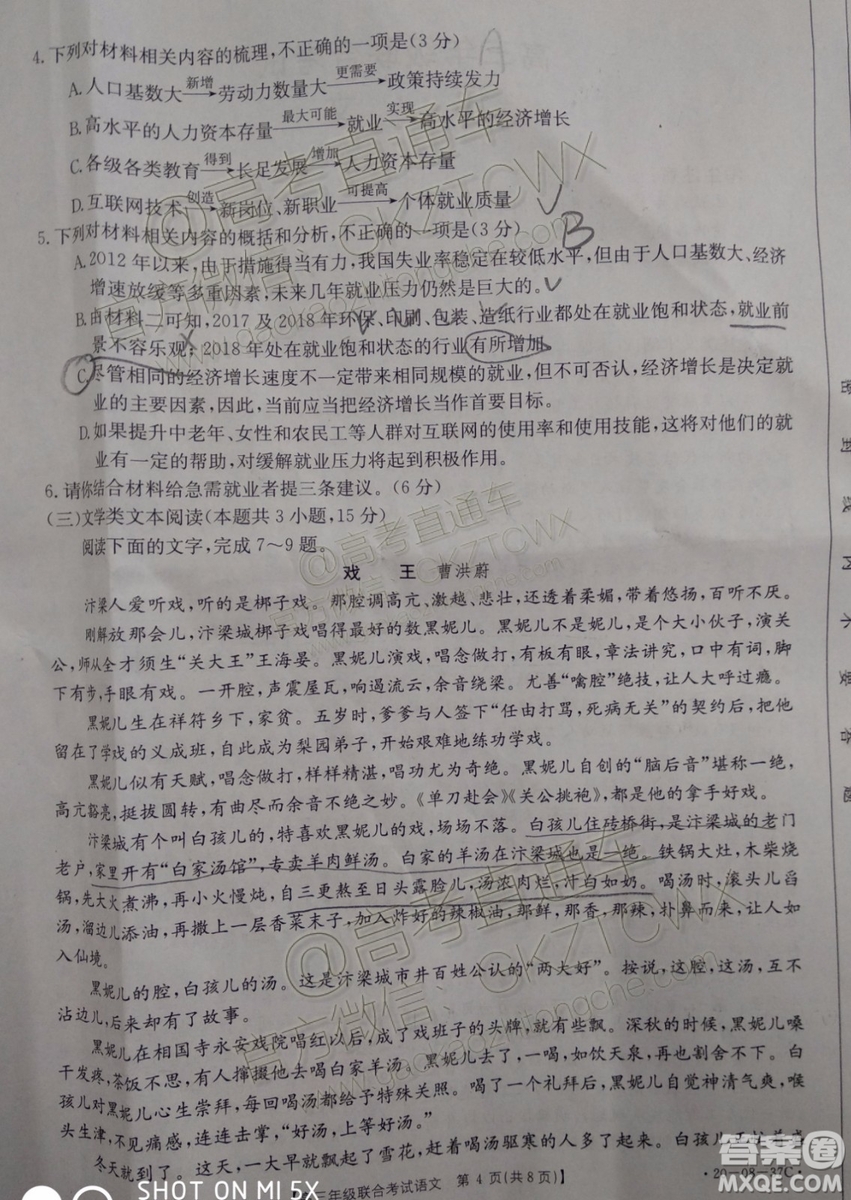 4.下列对材料相关内容的梳理,不正确的一项是(3分)
A.人口基数大 新增→ 劳动力数量大 更需要→ 政策持续发力
B.高水平的人力资本存量 最大可能→ 就业 实现→ 高水平的经济增长
C.各级各类教育 得到→ 长足发展 增加→ 人力资本存量
D.互联网技术 创造→ 新岗位、新职业 可提高→ 个体就业质量
5.下列对材料相关内容的概括和分析,不正确的一项是(3分)
B
A.2012年以来,由于措施得当有力,我国失业率稳定在较低水平,但由于人口基数大、经济
增速放缓等多重因素,未来几年就业压力仍然是巨大的。
B.由材料二可知,2017及2018年环保、印刷、包装、造纸行业都处在就业饱和状态,就业前
景不容乐观;2018年处在就业饱和状态的行业有所增加。
C.尽管相同的经济增长速度不一定带来相同规模的就业,但不可否认,经济增长是决定就
业的主要因素,因此,当前应当把经济增长当作首要目标。
D.如果提升中老年、女性和农民工等人群对互联网的使用率和使用技能,这将对他们的就
业有一定的帮助,对缓解就业压力将起到积极作用。
6.请你结合材料给急需就业者提三条建议。(6分)
(三)文学类文本阅读(本题共3小题,15分)
阅读下面的文字,完成7~9题。
戏 王 曹洪蔚
汴梁人爱听戏,听的是梆子戏。那腔调高亢、激越、悲壮,还透着柔媚,带着悠扬,百听不厌。
刚解放那会儿,汴梁城梆子戏唱得最好的数黑妮儿。黑妮儿不是妮儿,是个大小伙子,演关
公,师从全才须生“关大王”王海晏。黑妮儿演戏,唱念做打,有板有眼,章法讲究,口中有词,脚
下有步,手眼有戏。一开腔,声震屋瓦,响遏流云,余音绕梁。尤善“噙腔”绝技,让人大呼过瘾。
黑妮儿生在祥符乡下,家贫。五岁时,爹爹与人签下“任由打骂,死病无关”的契约后,把他
留在了学戏的义成班,自此成为梨园弟子,开始艰难地练功学戏。
黑妮儿似有天赋,唱念做打,样样精湛,唱功尤为奇绝。黑妮儿自创的“脑后音”堪称一绝,
高亢豁亮,挺拔圆转,有曲尽而余音不绝之妙。《单刀赴会》《关公挑袍》,都是他的拿手好戏。
汴梁城有个叫白孩儿的,特喜欢黑妮儿的戏,场场不落。白孩儿住砖桥街,是汴梁城的老门
老户,家里开有“白家汤馆”,专卖羊肉鲜汤。白家的羊汤在汴梁城也是一绝。铁锅大灶,木柴烧
锅,先大火煮沸,再小火慢炖,自三更熬至日头露脸儿,汤浓肉烂,汁白如奶。喝汤时,滚头儿舀
汤,溜边儿添油,再撒上一层香菜末子,加入炸好的辣椒油,那鲜,那香,那辣,扑鼻而来,让人如
入仙境。
黑妮儿的腔,白孩儿的汤。这是汴梁城市井百姓公认的“两大好”。按说,这腔,这汤,互不
沾边儿,后来却有了故事。
黑妮儿在相国寺永安戏院唱红以后,成了戏班子的头牌,就有些飘。深秋的时候,黑妮儿嗓
干发疼,茶饭不思,有人撺掇他去喝白家羊汤。黑妮儿去了,一喝,如饮天泉,再也割舍不下。白
孩儿对黑妮儿心生崇拜,每回喝汤都给予特殊关照。喝了一个礼拜后,黑妮儿自觉神清气爽,喉
头生津,不见痛感,连连击掌,“好汤,上等好汤。”
冬天就到了。这天,一大早就飘起了雪花,赶着喝汤驱寒的人多了起来。白孩儿
三年级联合考试语文 第4页(共8页)】
·20-08-37C·
@高考直通车
官方微信:GKZTCWX
www.gaokaozhitongche.com
SHOT ON MI 5X
答案圈
MXQE.COM
密
封
线
内
不
要
答
题